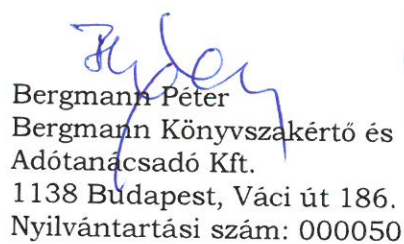 Bergmann Péter
Bergmann Könyvszakértő és
Adótanácsadó Kft.
1138 Budapest, Váci út 186.
Nyilvántartási szám: 000050